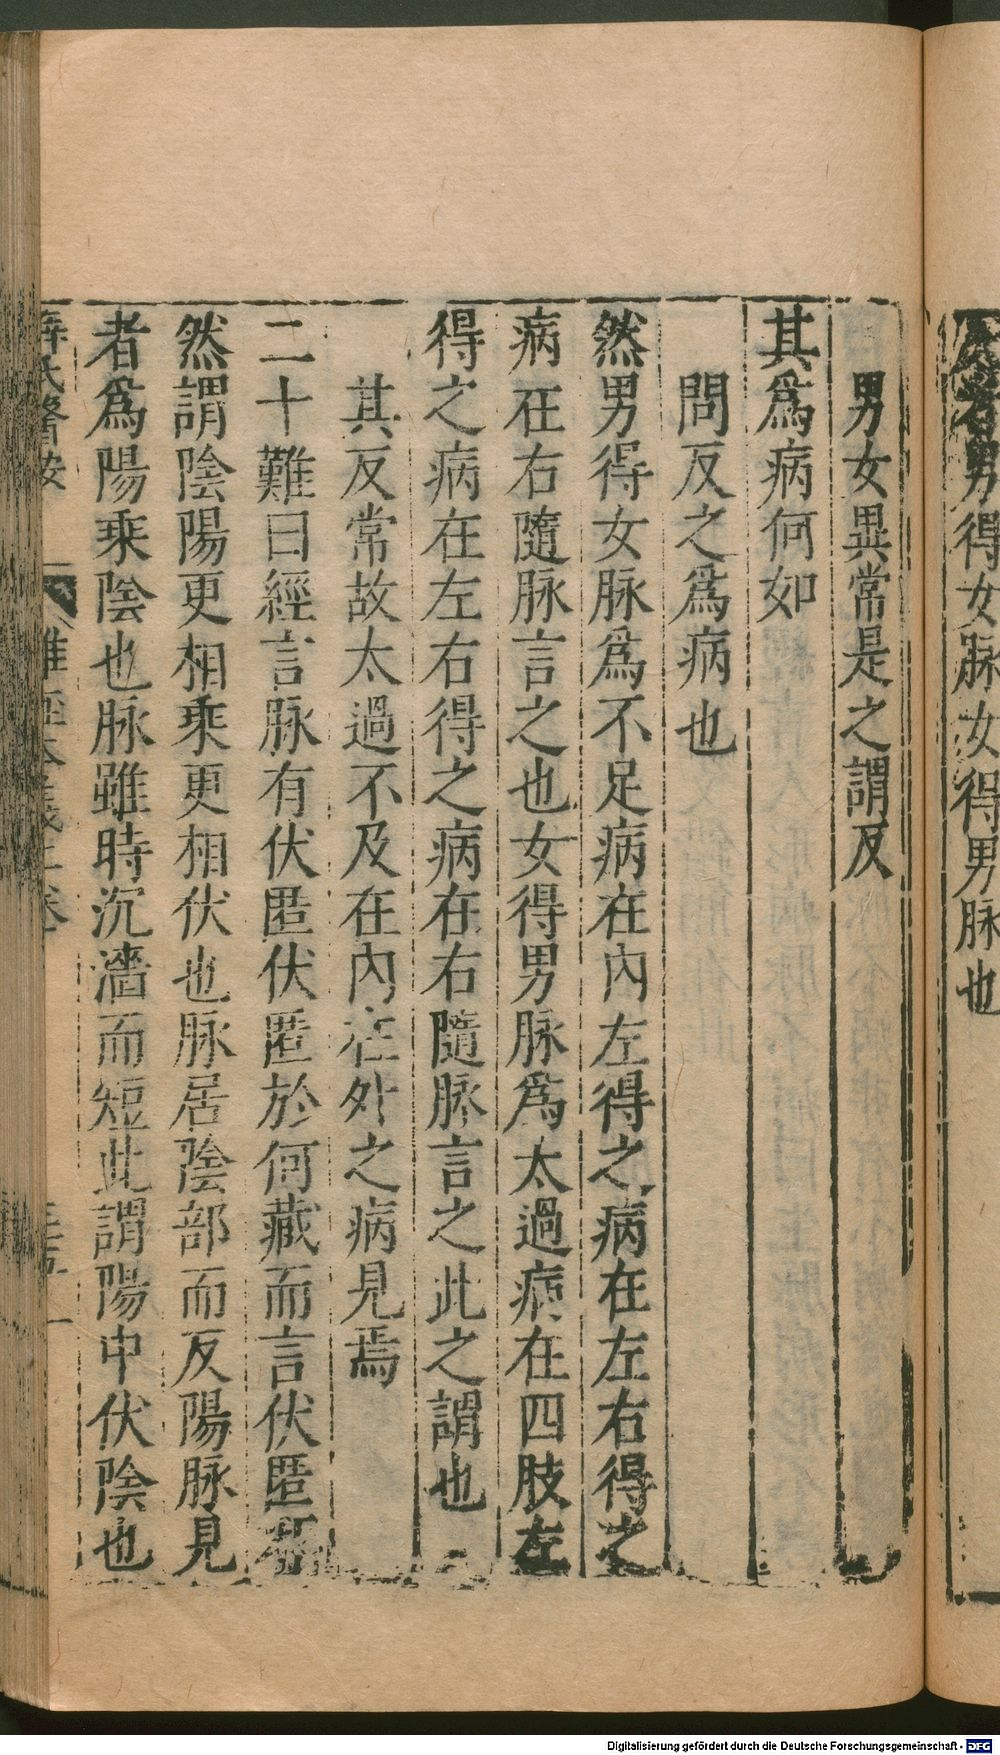 得女脉女得男脉也
男女異常是之謂反
其爲病何如
問反之爲病也
然男得女脉爲不足病在內左得之病在左右得之
病在右隨脉言之也女得男脉爲太過病在四肢左
得之病在左右得之病在右隨脉言之此之謂也
其反常故太過不及在內在外之病見焉
二十難曰經言脉有伏匿伏匿於何藏而言伏匿邪
然謂陰陽更相乘更相伏也脉居陰部而反陽脉見
者爲陽乘陰也脉雖時沉濇而短此謂陽中伏陰也
薛氏醫按
難經本義上卷
Digitalisierung gefördert durch die Deutsche Forschungsgemeinschaft - DFG